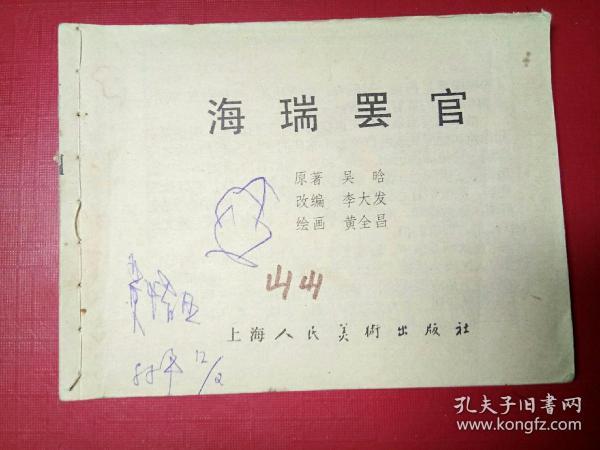 海瑞罢官
原著 吴晗
改编 李大发
绘画 黄全昌
山山
上海人民美術出版社
孔夫子旧书网
www.kongfz.com